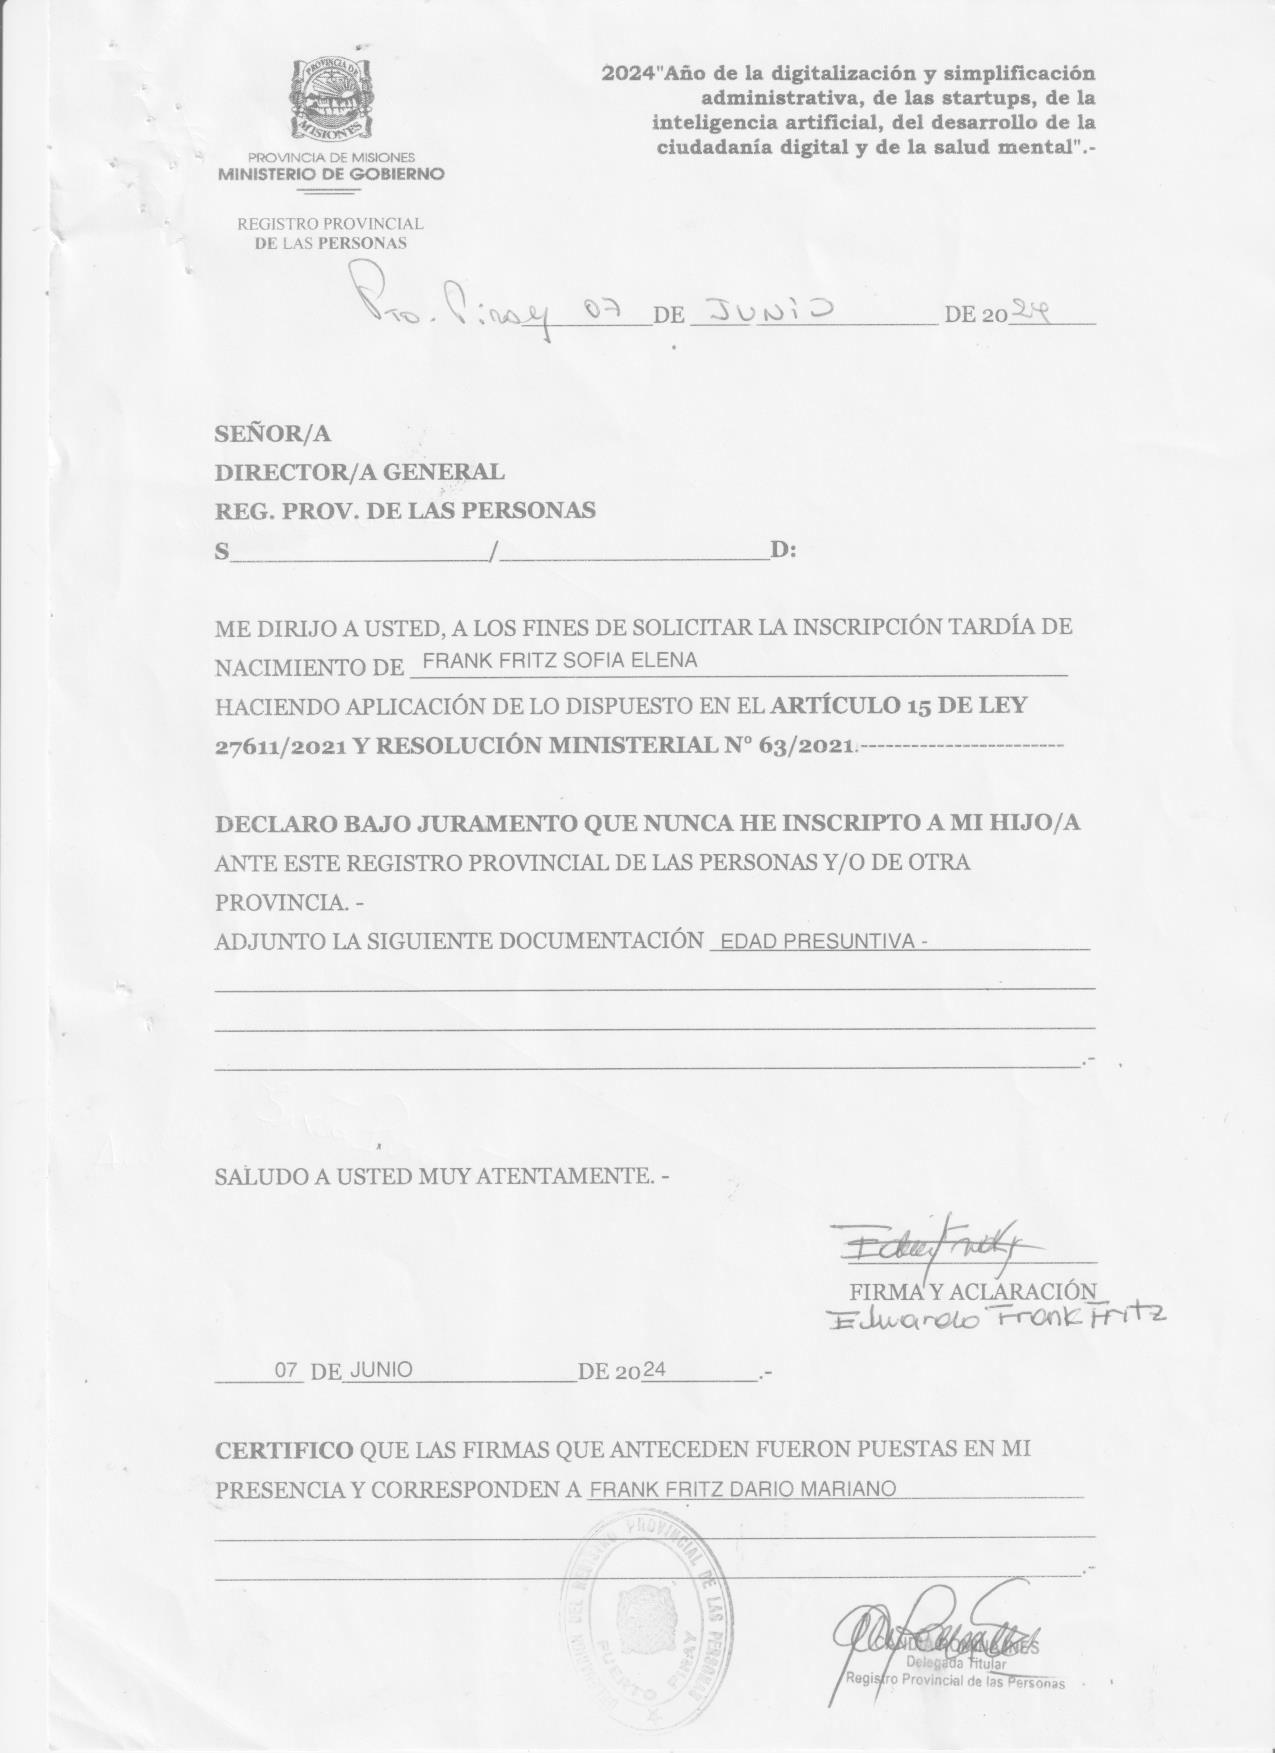 PROVINCIA DE
MISIONES
PROVINCIA DE MISIONES
MINISTERIO DE GOBIERNO
REGISTRO PROVINCIAL
DE LAS PERSONAS
2024"Año de la digitalización y simplificación
administrativa, de las startups, de la
inteligencia artificial, del desarrollo de la
ciudadanía digital y de la salud mental".-
Pto. Piray 07 DE JUNIO DE 2024
SEÑOR/A
DIRECTOR/A GENERAL
REG. PROV. DE LAS PERSONAS
S____________________/_____________________D:
ME DIRIJO A USTED, A LOS FINES DE SOLICITAR LA INSCRIPCIÓN TARDÍA DE
NACIMIENTO DE FRANK FRITZ SOFIA ELENA
HACIENDO APLICACIÓN DE LO DISPUESTO EN EL ARTÍCULO 15 DE LEY
27611/2021 Y RESOLUCIÓN MINISTERIAL N° 63/2021.------------------------
DECLARO BAJO JURAMENTO QUE NUNCA HE INSCRIPTO A MI HIJO/A
ANTE ESTE REGISTRO PROVINCIAL DE LAS PERSONAS Y/O DE OTRA
PROVINCIA. -
ADJUNTO LA SIGUIENTE DOCUMENTACIÓN EDAD PRESUNTIVA -
.-
SALUDO A USTED MUY ATENTAMENTE. -
FIRMA Y ACLARACIÓN
Eduardo Frank Fritz
07 DE JUNIO DE 2024.-
CERTIFICO QUE LAS FIRMAS QUE ANTECEDEN FUERON PUESTAS EN MI
PRESENCIA Y CORRESPONDEN A FRANK FRITZ DARIO MARIANO
.-
DEL REGISTRO PROVINCIAL DE LAS PERSONAS
PUERTO PIRAY
INES
Delegada Titular
Registro Provincial de las Personas